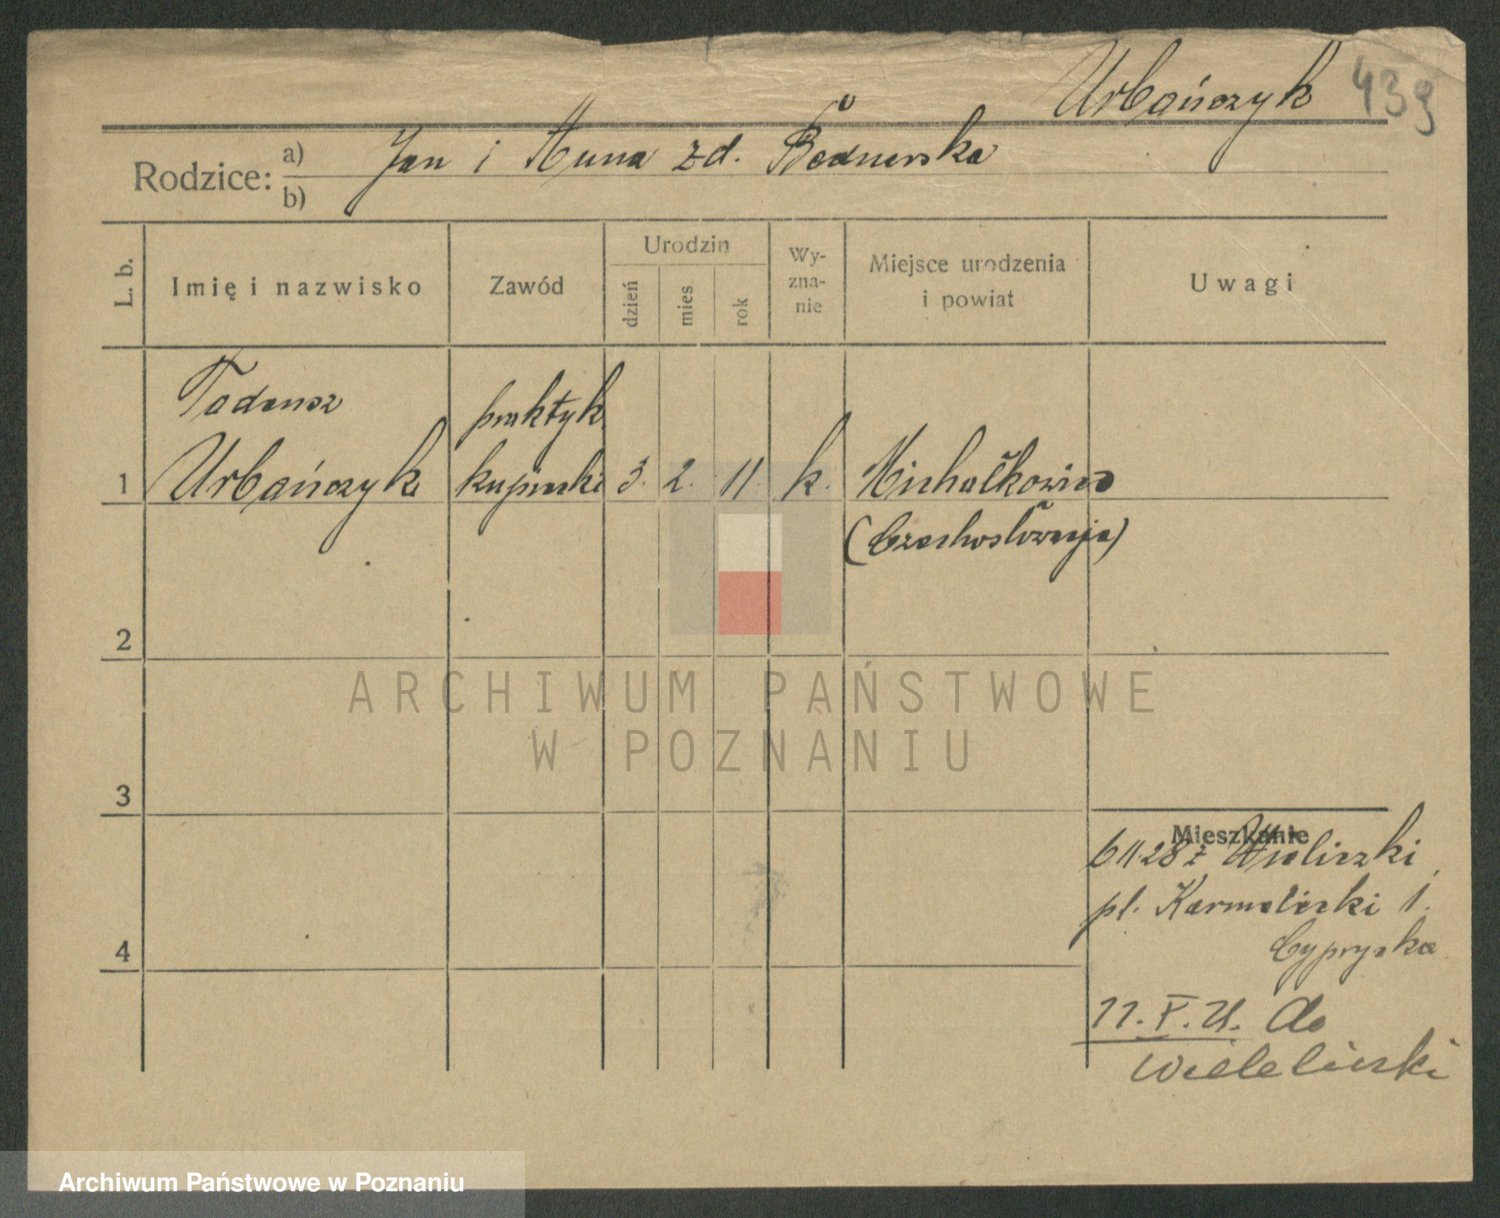 Urbańczyk 439
Rodzice: a) Jan i Anna zd. Bednarska
b)
L. b. Imię i nazwisko Zawód Urodzin dzień mies rok Wy-zna-nie Miejsce urodzenia i powiat Uwagi
Tadeusz praktyk
1 Urbańczyk kupiecki 3. 2. 11. k. Michałkowice
(Czechosłowacja)
2
ARCHIWUM PAŃSTWOWE
W POZNANIU
3
Mieszkanie
6 11 28 z Wieliczki
pl. Karmelicki 1.
4
11. V. do
Archiwum Państwowe w Poznaniu